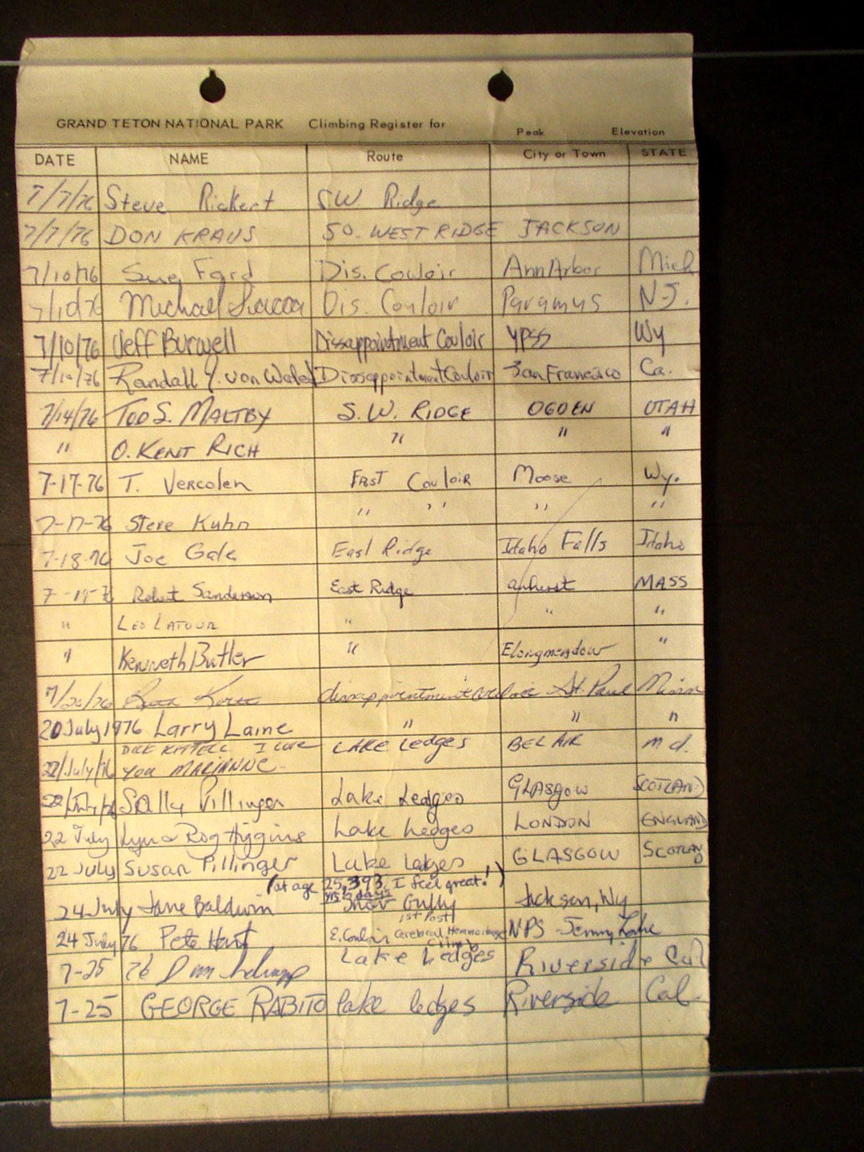 GRAND TETON NATIONAL PARK Climbing Register for Peak Elevation
DATE NAME Route City or Town STATE
7/7/76 Steve Rickert SW Ridge
7/7/76 DON KRAUS SO. WEST RIDGE JACKSON
7/10/76 Sue Ford Dis. Couloir Ann Arbor Mich
7/10/76 Michael Dis. Couloir Paramus N.J.
7/10/76 Jeff Burwell Dissappointment Couloir YPSS Wy
7/10/76 Randall Y. von Dissappointment Couloir San Francisco Ca.
7/14/76 TOD S. MALTBY S.W. RIDGE OGDEN UTAH
" O. KENT RICH " " "
7-17-76 T. Vercolen East Couloir Moose Wy.
7-17-76 Steve Kuhn " " " " " "
7-18-76 Joe Gale East Ridge Idaho Falls Idaho
Robert Sanderson East Ridge amherst MASS
" LEO LATOUR " " "
" Kenneth Butler " Elongmeadow "
7/20/76 disappointment St. Paul Minn
20 July 1976 Larry Laine " " "
DICK KITTELL I LOVE
22/July/76 YOU MARIANNE. LAKE Ledges BEL AIR Md.
22/July/76 Sally Pillinger Lake Ledges GLASGOW SCOTLAND
22 July Lyn & Rog Higgins Lake Ledges LONDON ENGLAND
22 July Susan Pillinger Lake Ledges GLASGOW SCOTLAND
(at age 25, 393, I feel great!)
yrs days
24 July Jane Baldwin Snow Gully Jackson, Wy
1st Post
24 July 76 Pete Hart E. Couloir Cerebral Hemorrhage NPS - Jenny Lake
Climb
7-25 76 Lake Ledges Riverside Cal
7-25 GEORGE RABITO lake ledges Riverside Cal.